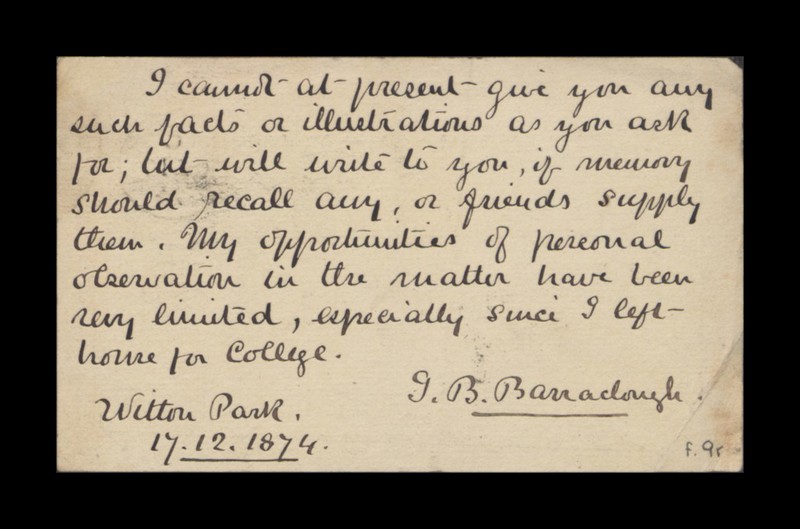 I cannot at present give you any
such facts or illustrations as you ask
for; but will write to you, if memory
should recall any, or friends supply
them. My opportunities of personal
observation in the matter have been
very limited, especially since I left
home for College.
J. B. Barraclough.
Witton Park.
17.12.1874.
f. 9r